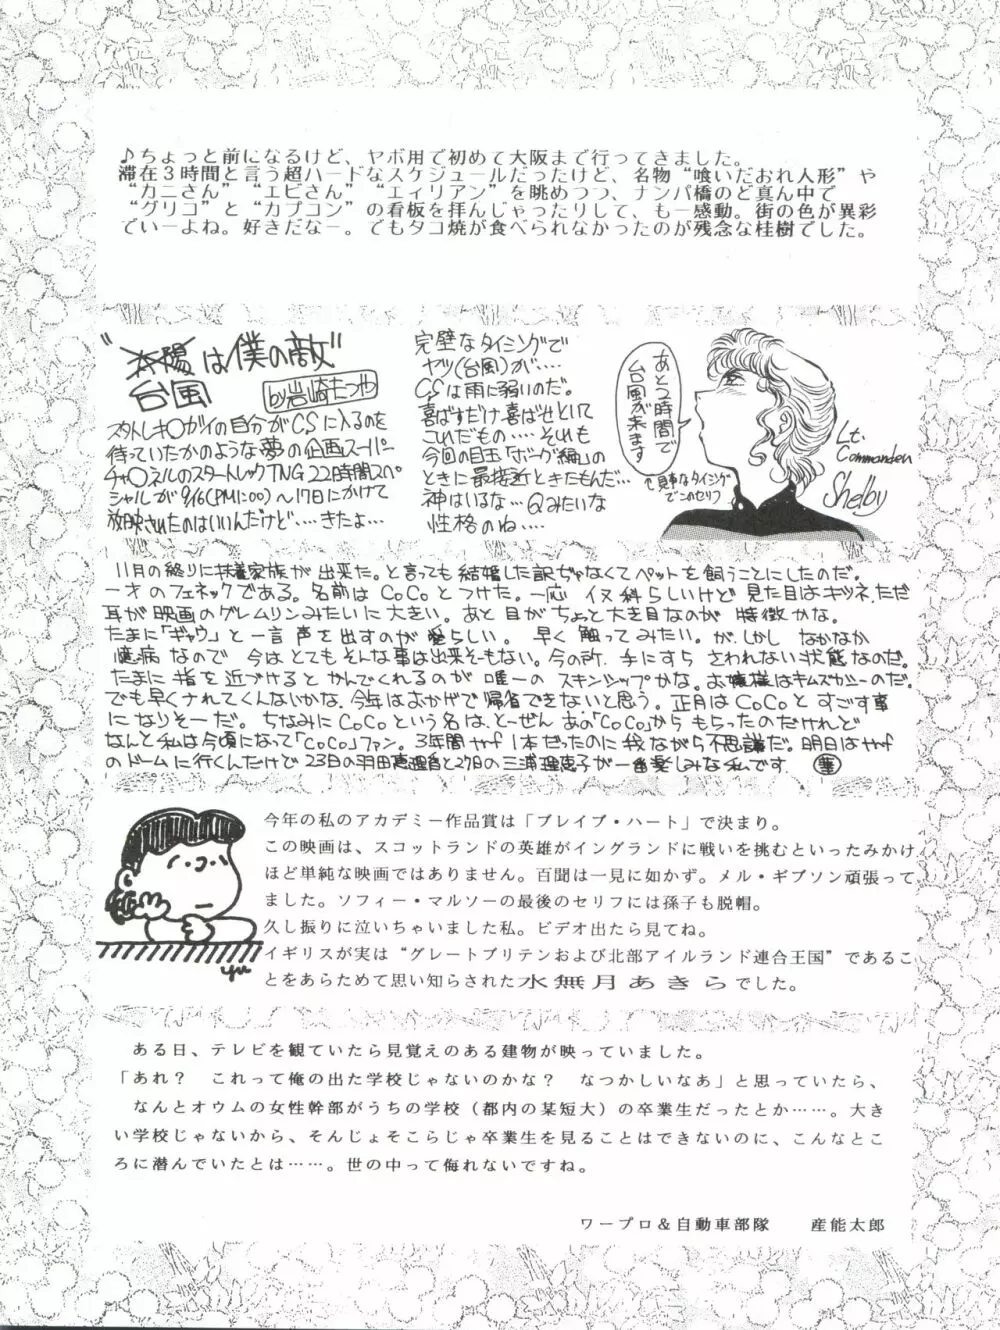 ♪ちょっと前になるけど、ヤボ用で初めて大阪まで行ってきました。
滞在3時間と言う超ハードなスケジュールだったけど、名物“喰いだおれ人形”や
“カニさん”“エビさん”“エィリアン”を眺めつつ、ナンパ橋のど真ん中で
“グリコ”と“カプコン”の看板を拝んじゃったりして、も一感動。街の色が異彩
でいーよね。好きだなー。でもタコ焼が食べられなかったのが残念な桂樹でした。
“太陽は僕の敵”
台風
by岩崎たつや
スタトレキ○ガイの自分がCSに入るのを
待っていたかのような夢の企画スーパー
チャ○ネルのスタートレックTNG 22時間スペ
シャルが9/16(PM1:00)～17日にかけて
放映されたのはいいんだけど‥‥きたよ…
完璧なタイミングで
ヤツ(台風)が‥‥
CSは雨に弱いのだ。
喜ばすだけ喜ばせといて
これだもの‥‥それも
今回の目玉「ボーグ編」の
ときに最接近ときたもんだ…
神はいるな…Qみたいな
性格のね‥‥
あと2時間で
台風が来ます
↑見事なタイミング
でこのセリフ
Lt.
Commander
Shelby
11月の終りに扶養家族が出来た。と言っても結婚した訳ぢゃなくてペットを飼うことにしたのだ。
一才のフェネックである。名前はCoCoとつけた。一応イヌ科らしいけど見た目はキツネ、ただ
耳が映画のグレムリンみたいに大きい。あと目がちょっと大き目なのが特徴かな。
たまに「ギャウ」と一言声を出すのが愛らしい。早く触ってみたい。が、しかしなかなか
臆病なので今はとてもそんな事は出来そーもない。今の所、手にすらさわれない状態なのだ。
たまに指を近づけるとかんでくれるのが唯一のスキンシップかな。お嬢様はキムズカシーのだ。
でも早くナれてくんないかな。今年はおかげで帰省できないと思う。正月はCoCoとすごす事
になりそーだ。ちなみにCoCoという名は、とーぜんあの「CoCo」からもらったのだけれど
なんと私は今頃になって「CoCo」ファン。3年間やf1本だったのに我ながら不思議だ。明日はやf
のドームに行くんだけど23日の羽田恵理香と27日の三浦理恵子が一番楽しみな私です ㊣
今年の私のアカデミー作品賞は「ブレイブ・ハート」で決まり。
この映画は、スコットランドの英雄がイングランドに戦いを挑むといったみかけ
ほど単純な映画ではありません。百聞は一見に如かず。メル・ギブソン頑張って
ました。ソフィー・マルソーの最後のセリフには孫子も脱帽。
久し振りに泣いちゃいました私。ビデオ出たら見てね。
イギリスが実は“グレートブリテンおよび北部アイルランド連合王国”であるこ
とをあらためて思い知らされた水無月あきらでした。
yu
ある日、テレビを観ていたら見覚えのある建物が映っていました。
「あれ？　これって俺の出た学校じゃないのかな？　なつかしいなあ」と思っていたら、
なんとオウムの女性幹部がうちの学校（都内の某短大）の卒業生だったとか……。大き
い学校じゃないから、そんじょそこらじゃ卒業生を見ることはできないのに、こんなとこ
ろに潜んでいたとは……。世の中って侮れないですね。
ワープロ＆自動車部隊　　産能太郎